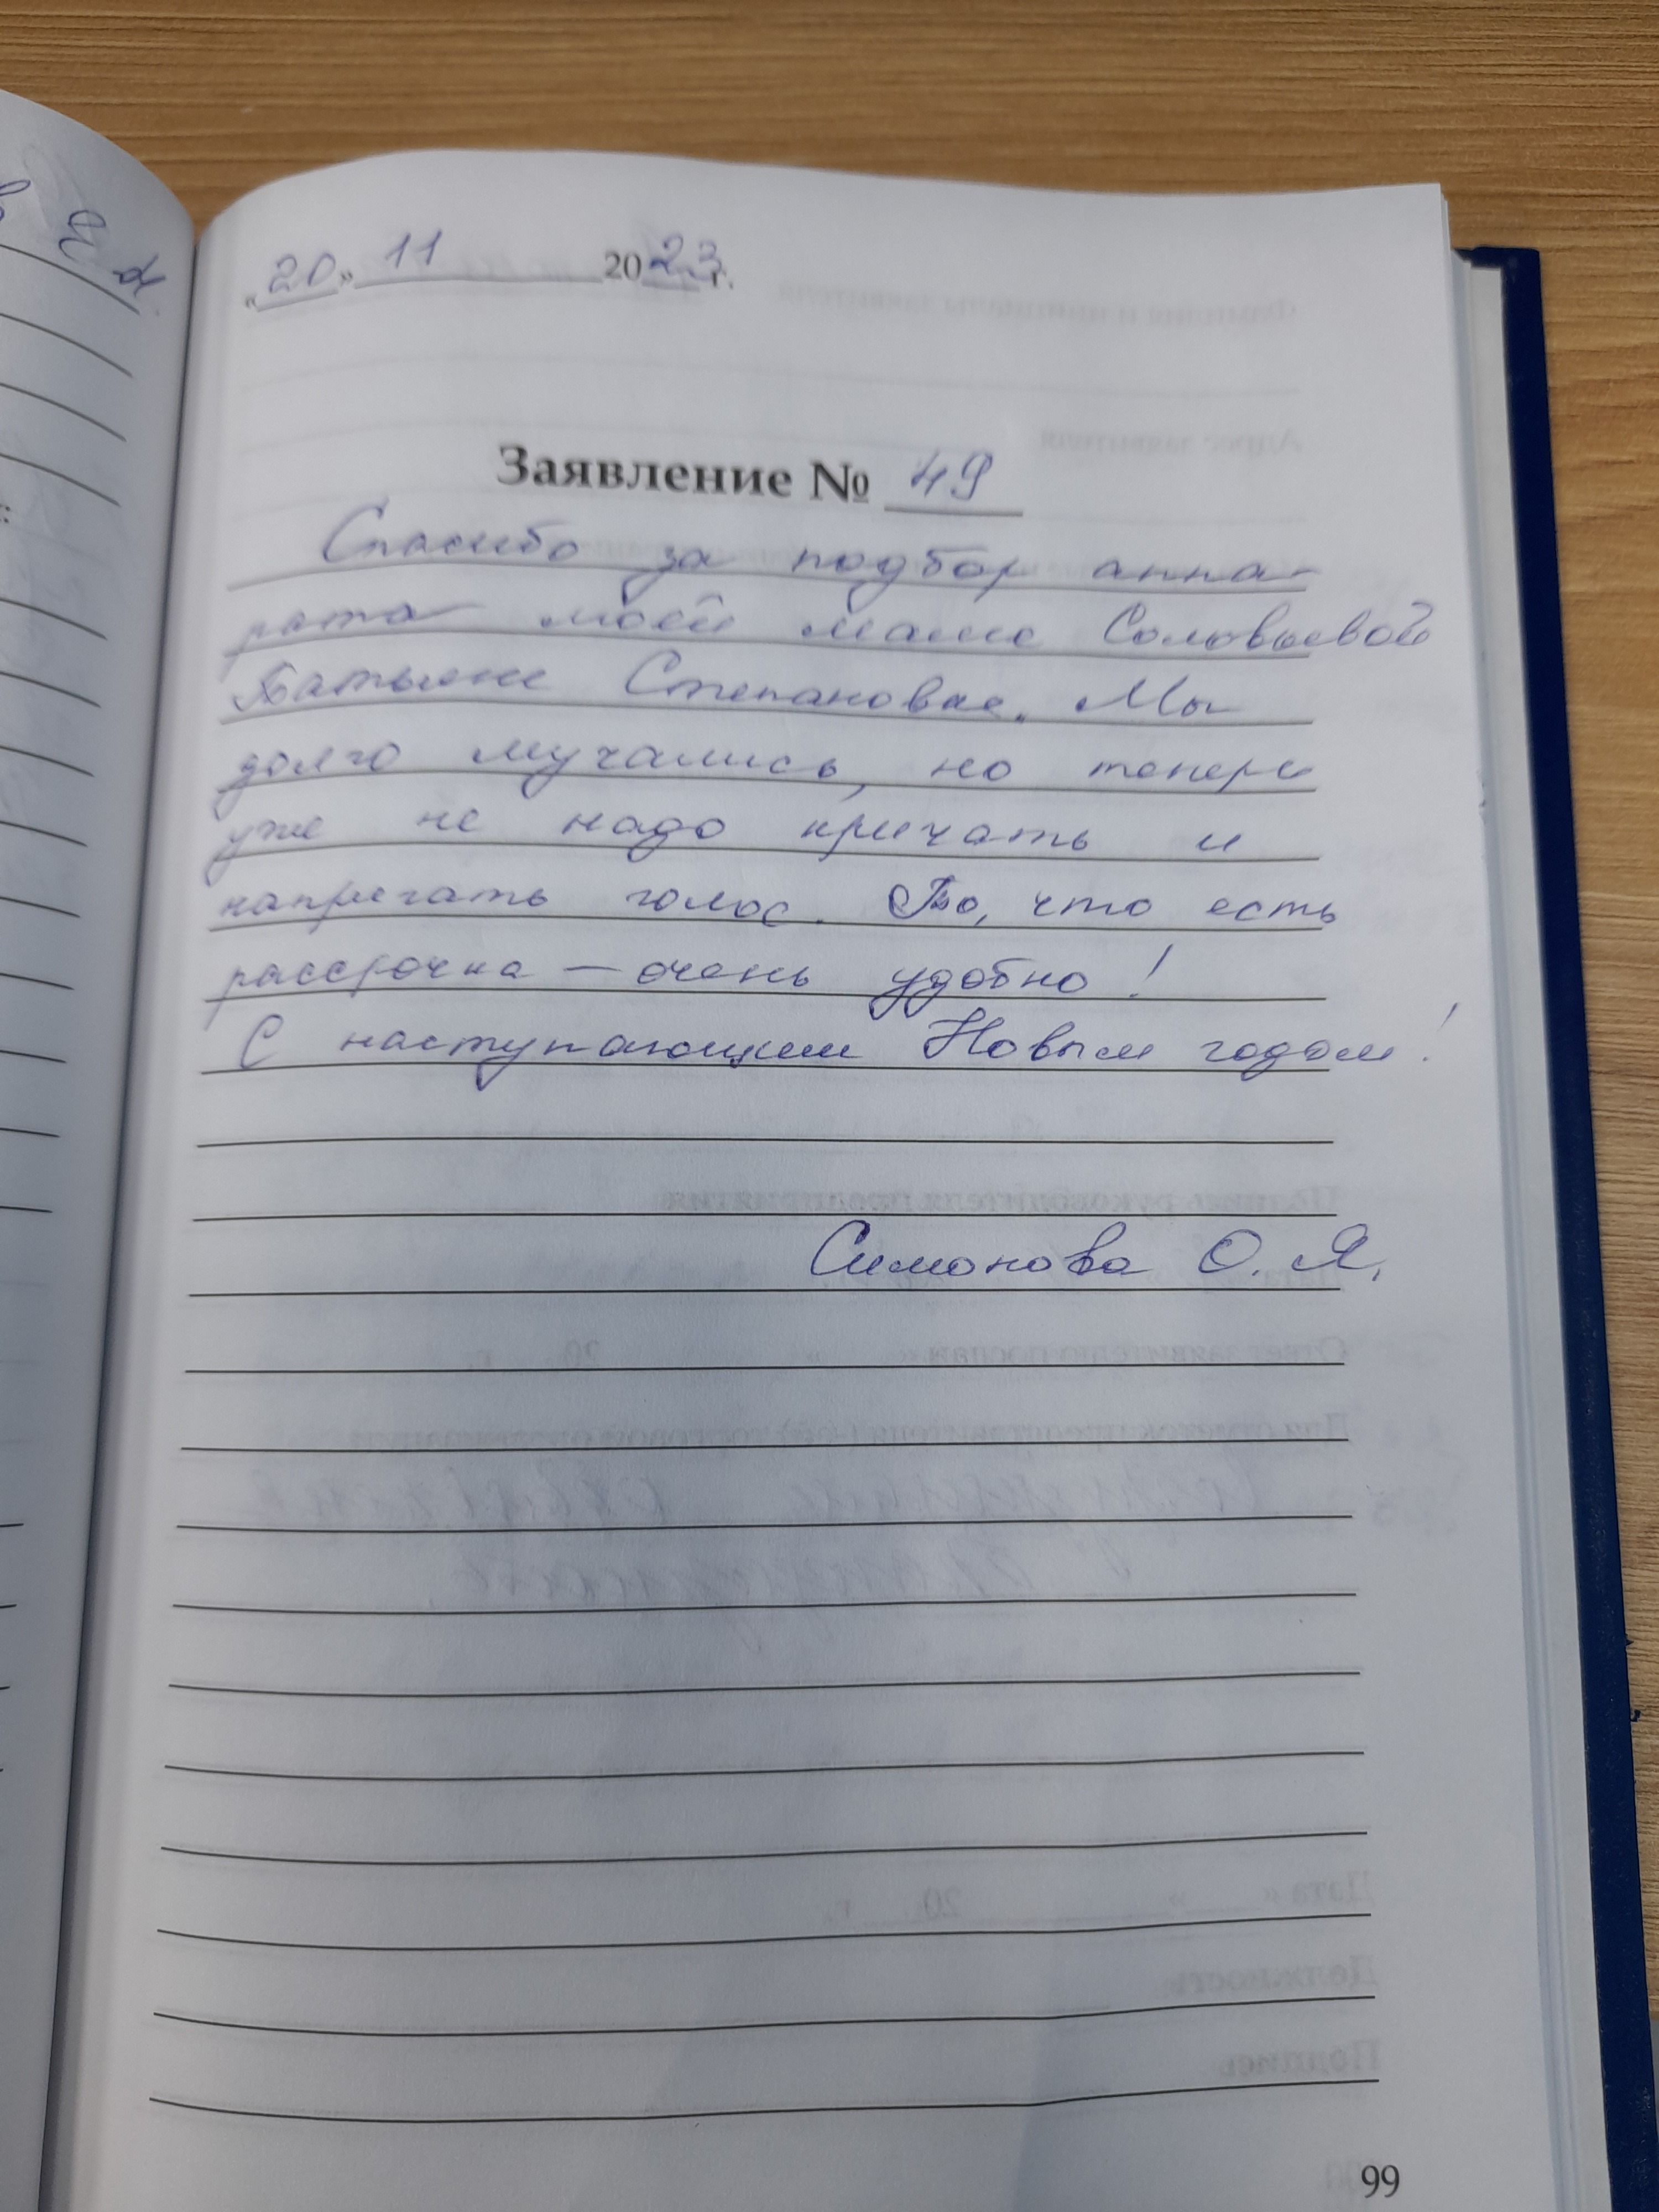 «20» 11 2023г.
Заявление № 49
Спасибо за подбор аппа-
рата моей маме Соловьевой
Татьяне Степановне. Мы
долго мучались, но теперь
уже не надо кричать и
напрягать голос. То, что есть
рассрочка — очень удобно!
С наступающим Новым годом!
Симонова О. Я.
99